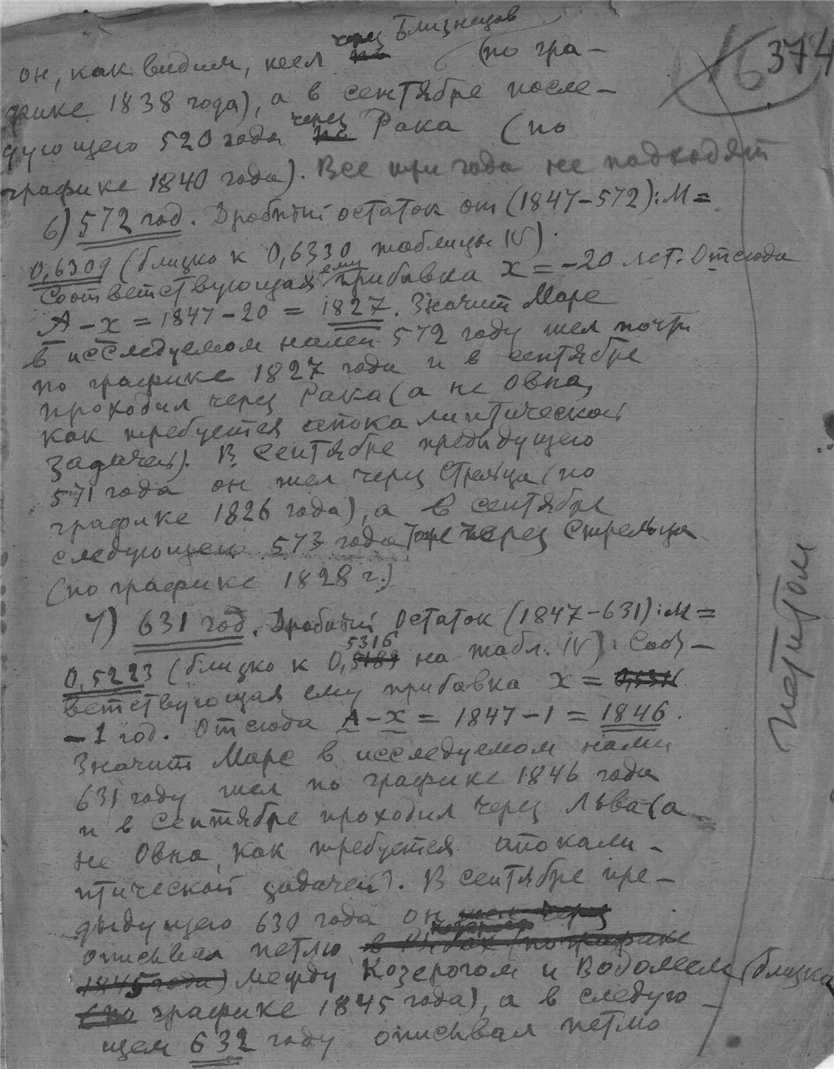 он, как видим, шел через Близнецов (по гра-
фике 1838 года), а в сентябре после-
дующего 520 года через Рака (по
графике 1840 года). Все три года не подходят
6) 572 год. Дробный остаток от (1847-572):М=
0,6309 (близко к 0,6330 таблицы IV).
Соответствующая ему прибавка x = -20 лет. Отсюда
А-x = 1847-20 = 1827. Значит Марс
в исследуемом нами 572 году шел почти
по графике 1827 года и в сентябре
проходил через Рака (а не Овна,
как требуется апокалиптической
задачей). В сентябре предыдущего
571 года он шел через Стрельца (по
графике 1826 года), а в сентябре
следующего 573 года тоже через Стрельца
(по графике 1828 г.)
7) 631 год. Дробный остаток (1847-631):М=
0,5223 (близко к 0,5316 на табл. IV). Соот-
ветствующая ему прибавка x =
-1 год. Отсюда А-x = 1847-1 = 1846.
Значит Марс в исследуемом нами
631 году шел по графике 1846 года
и в сентябре проходил через Льва (а
не Овна, как требуется апокали-
птической задачей). В сентябре пре-
дыдущего 630 года он шел через
описывал петлю в Рыбах (по графике
1845 года) между Козерогом и Водолеем (близко
(по графике 1845 года), а в следую-
щем 632 году описывал петлю
петитом
16
374